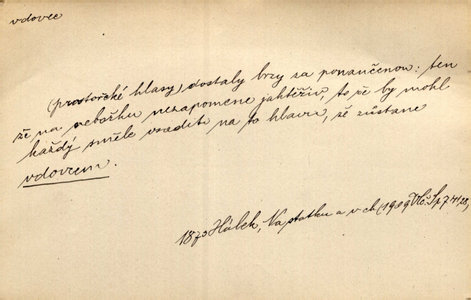 vdovec
(prostořeké hlasy) dostaly brzy za ponaučenou: ten
že na nebožku nezapomene jaktěživ, to že by mohl
každý směle vsadit na to hlavu, že zůstane
vdovcem.
1873 Hálek, Na statku a v ch (1909